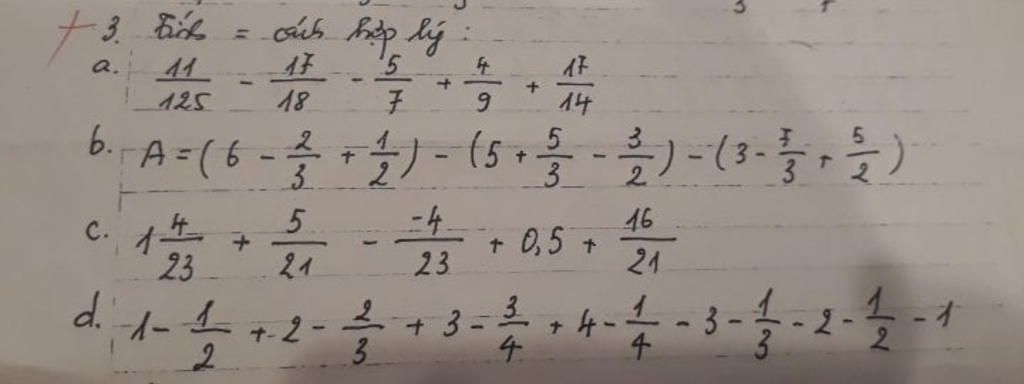 3. Tính = cách hợp lý:
a. 11/125 - 17/18 - 5/7 + 4/9 + 17/14
b. A = (6 - 2/3 + 1/2) - (5 + 5/3 - 3/2) - (3 - 7/3 + 5/2)
c. 1 4/23 + 5/21 - -4/23 + 0,5 + 16/21
d. 1 - 1/2 + 2 - 2/3 + 3 - 3/4 + 4 - 1/4 - 3 - 1/3 - 2 - 1/2 - 1